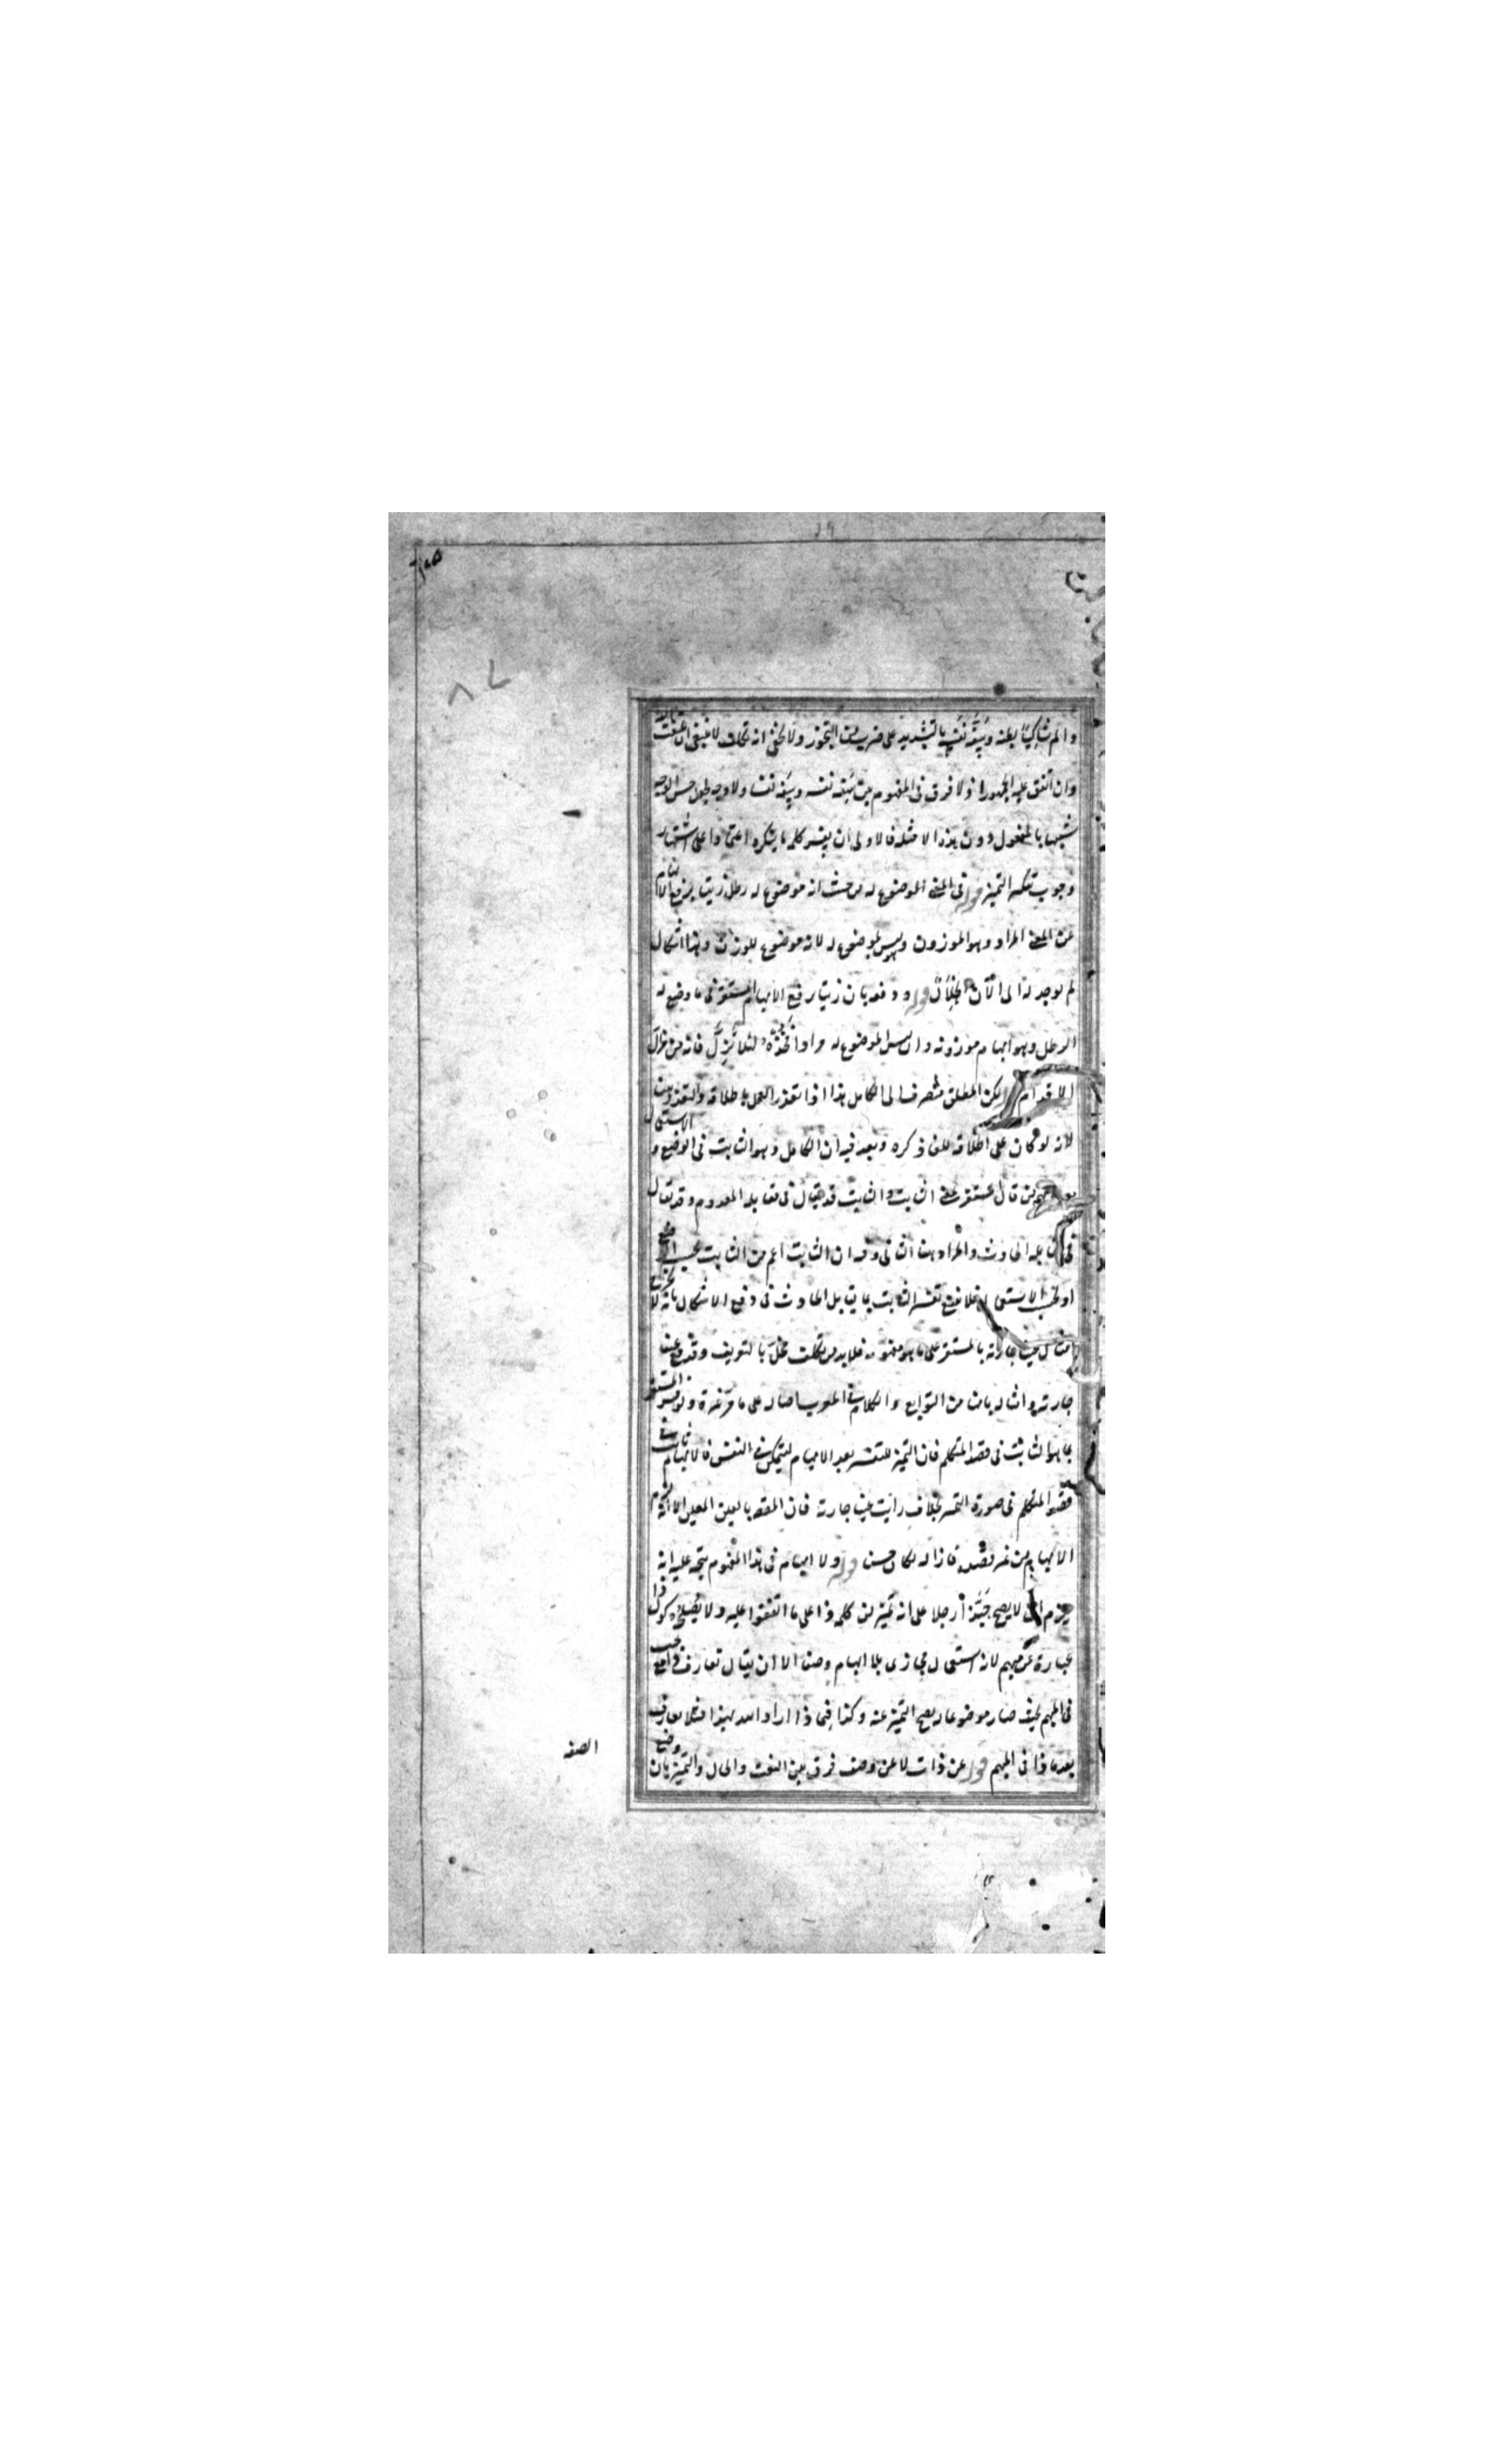 والم شاكيا بطنه وسفه نفسه بالتشديد على ضرب من التجوز ولا يخفى انه تكلف لا ينبغي ان يلتفت اليه
وان اتفق عليه الجمهور اذ لا فرق في المفهوم بين سفه نفسه وسفه نفسا ولا وجه لجعل حسن الوجه
شبيها بالمفعول دون هذه الامثلة فالاولى ان يفسر كلمه ما ينكره اعتمادا على اشتهار
وجوب تنكير التميز قوله في المعنى الموضوع له من حيث انه موضوع له رطل زيتا يرفع الابهام
عن المعنى المراد وهو الموزون وليس الموضوع له لانه موضوع للوزن وهذا اشكال
لم يوجد له الى الآن قوله ودفعه بان زيتا يرفع الابهام المستقر في ما وضع له
الرطل وهو ابهام موزونه وان ليس الموضوع له مرادا فخذه لئلا تزل فانه من مزال
الاقدام لكن المطلق منصرف الى الكامل هذا اذا تعذر العمل باطلاقه والتعذر بين
لانه لو كان على اطلاقه للغا ذكره وبعد فيه ان الكامل وهو الثابت في الوضع والاستعمال
قال مستقر بمعنى الثابت والثابت قد يقال في مقابلة المعدوم وقد يقال
في مقابلة الحادث والمراد هنا الثاني وفيه ان الثابت اعم من الثابت بحسب الوضع
او بحسب الاستعمال فلا ينفع تفسير الثابت بما يقابل الحادث في دفع الاشكال بانه لا يخرج
عينا جارية بالمستقر على ما هو مفهومه فلا بد من تكلف مخل بالتعريف وقد دفع عينا
جارية وامثاله بانه من التوابع والكلام في المعرب اصالة على ما مر غير مرة ولو فسر المستقر
بما هو الثابت في قصد المتكلم فان التميز للتفسير بعد الابهام ليتمكن في النفس فالابهام ثابت في
قصد المتكلم في صورة التميز بخلاف رايت عينا جارية فان المقصد بالعين المعين الا انه لزم
الابهام من غير قصد فازاله لكان حسن قوله ولا ابهام في هذا المفهوم يتجه عليه انه
يلزم ان لا يصح حبذا رجلا على انه تميز من كلمة ذا على ما اتفقوا عليه ولا يصلحه كون ذا
عبارة عن مبهم لانه استعمال مجازي بلا ابهام وضعا الا ان يقال تعارف ذا بحسب
في المبهم بحيث صار موضوعا له يصح التميز عنه وكذا في ما ذا اراد الله بهذا مثلا تعارف
بعد ما ذا في المبهم قوله عن ذات لا عن وصف فرق بين النعت والحال والتميز بان وضع
الصفة